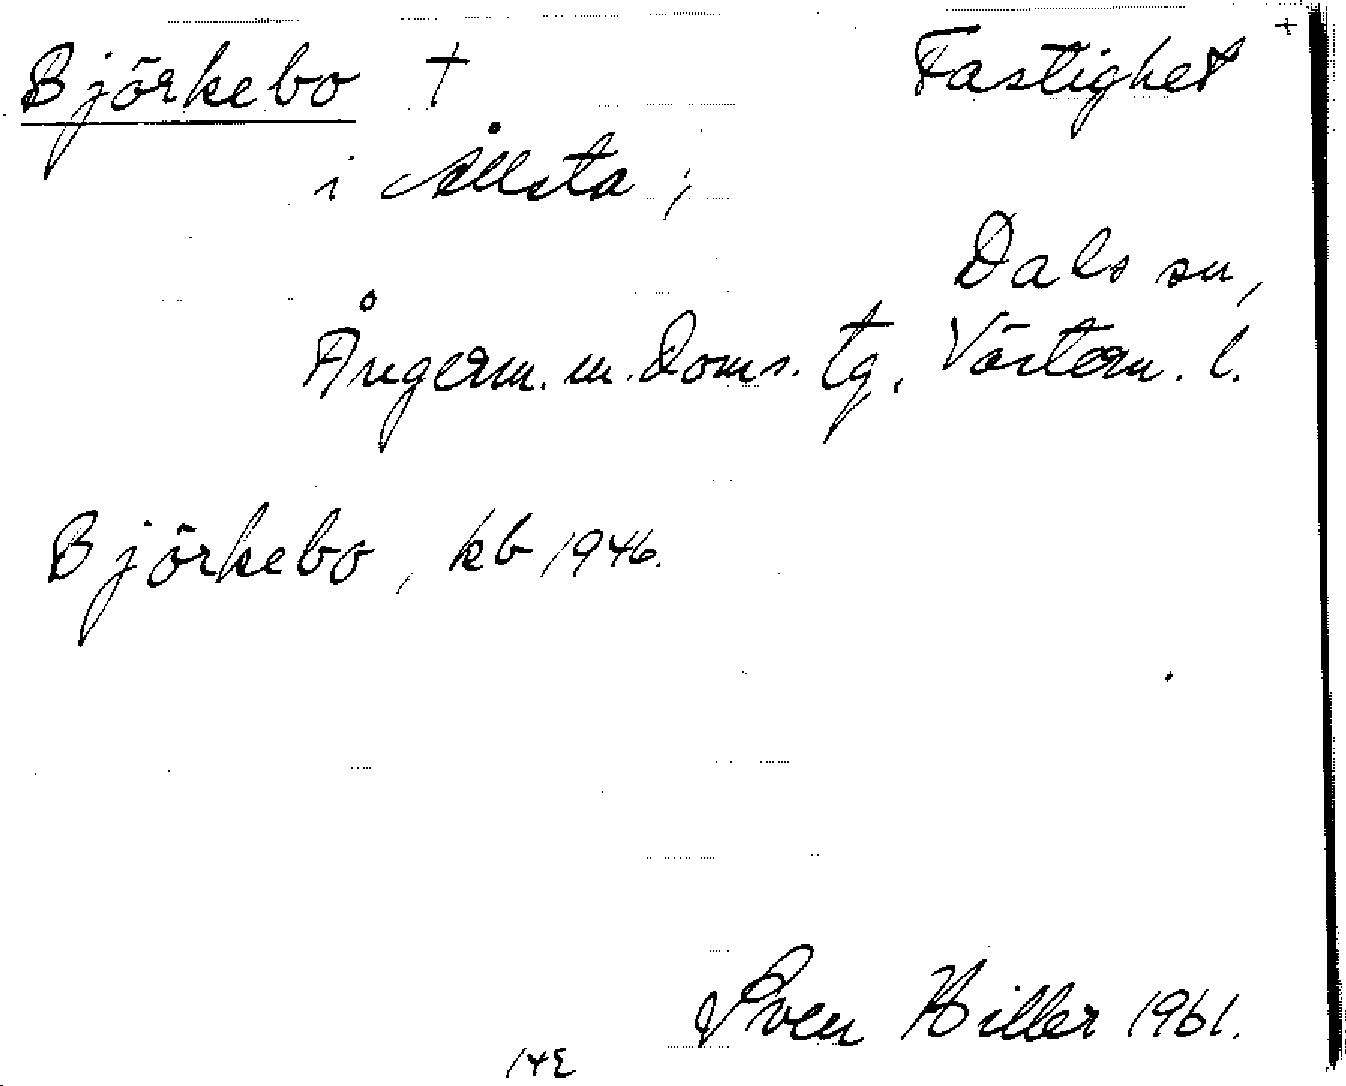 Björkebo † Fastighet +
i Ållsta,
Dals sn,
Ångerm. m. Doms. tg. Västern. l.
Björkebo, kb 1946.
Sven Hiller 1961.